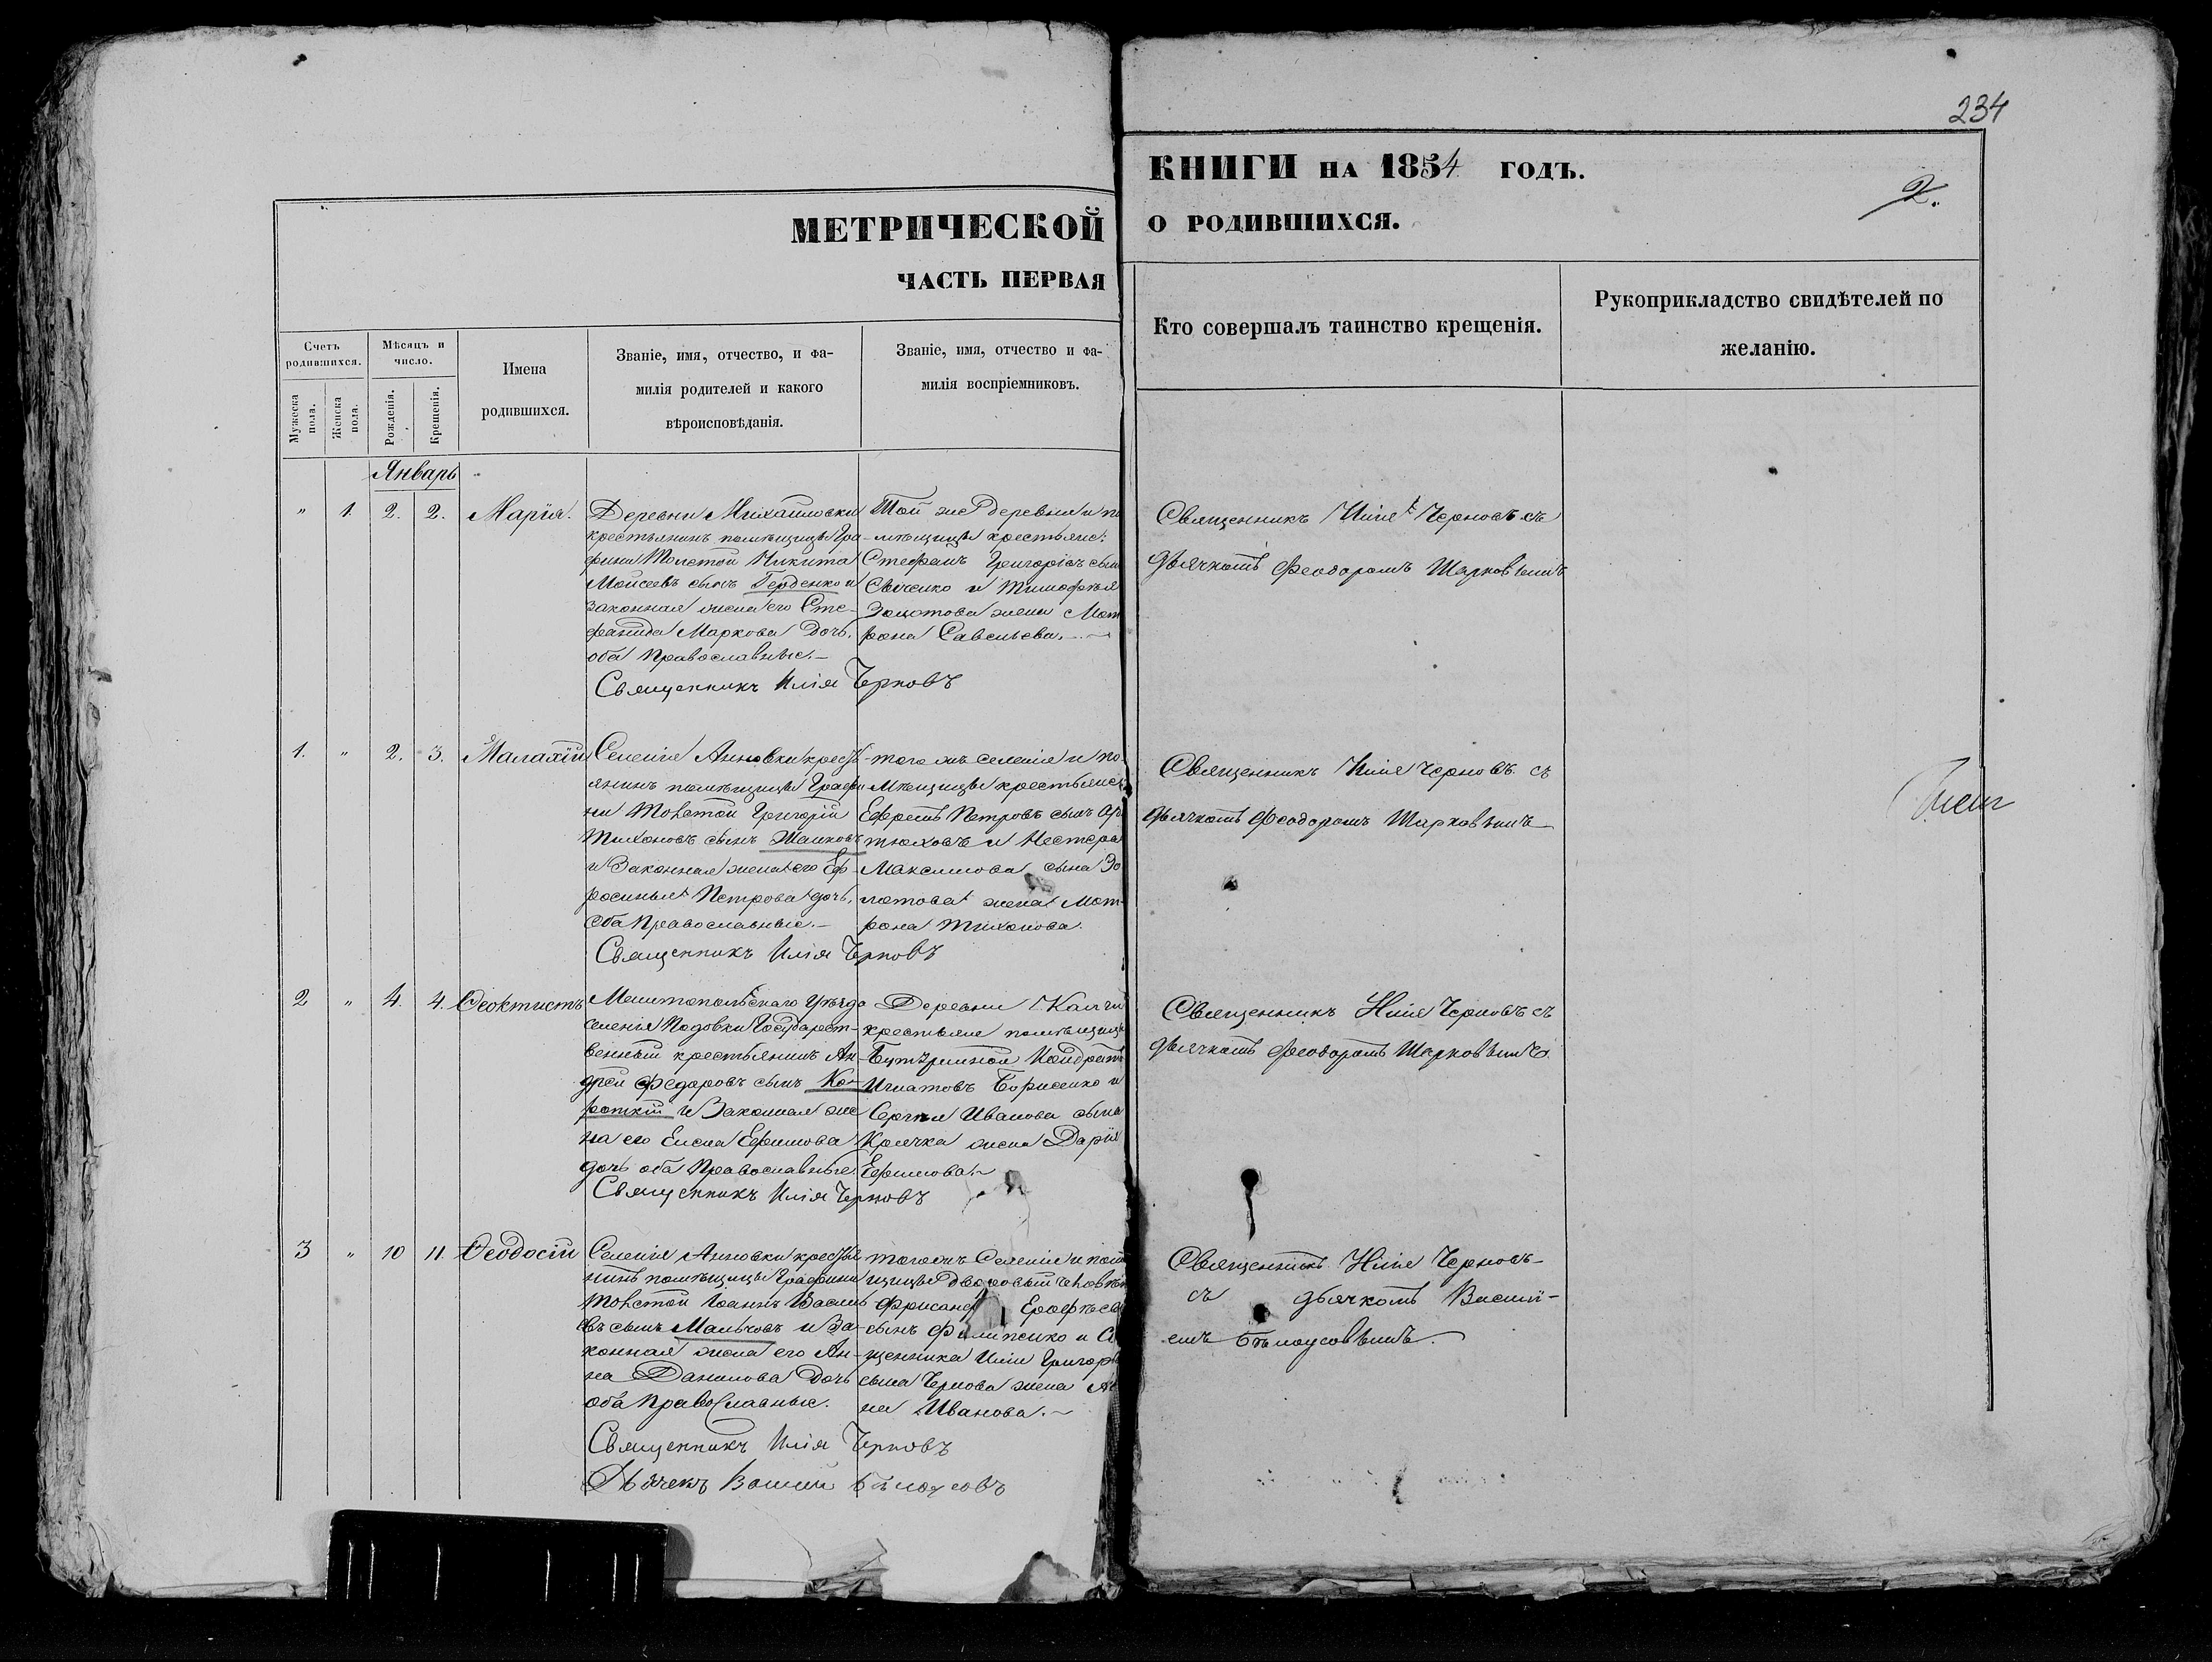 234
МЕТРИЧЕСКОЙ
ЧАСТЬ ПЕРВАЯ
КНИГИ НА 1854 ГОДЪ.
2.
О РОДИВШИХСЯ.
Счетъ родившихся.
Мужеска пола.
Женска пола.
Мѣсяцъ и число.
Рожденія.
Крещенія.
Имена
родившихся.
Званіе, имя, отчество, и фа-
милія родителей и какого
вѣроисповѣданія.
Званіе, имя, отчество и фа-
милія воспріемниковъ.
Кто совершалъ таинство крещенія.
Рукоприкладство свидѣтелей по
желанію.
Январь
" 1. 2. 2. Марія.
Деревни Михайловки
крестьянинъ помѣщицы Гра-
фини Толстой Никита
Моисеевъ сынъ Герденко и
законная жена его Сте-
фанида Маркова дочь,
оба православные.
Той же деревни и по
мѣщицы крестьяне:
Стефанъ Григорьевъ сынъ
и Тимофѣя
Золотова жена Мат
рона Савельева.
Священникъ Илія Черновъ съ
дьячкомъ Феодоромъ Шарковымъ
Священникъ Илія Черновъ
1. " 2. 3. Малахій
Селенія Анновки кресть
янинъ помѣщицы Графи
ни Толстой Григорій
Тихоновъ сынъ
и законная жена его Еф
росинья Петрова дочь,
оба православные.
того жъ селенія и по
мѣщицы крестьяне:
Ефремъ Петровъ сынъ Ар
тюховъ и Нестера
Максимова сына Зо
лотова жена Мат
рона Тихонова.
Священникъ Илія Черновъ съ
дьячкомъ Феодоромъ Шарковымъ
Священникъ Илія Черновъ
2 " 4. 4. Феоктистъ
Мелитопольскаго уѣзда
селенія Подовки Государст-
венный крестьянинъ Ан-
дрей Федоровъ сынъ Ко-
роткій и законная же
на его Елена Ефимова
дочь оба православные
Деревни
крестьяне помѣщицы
Кондратъ
Игнатовъ Борисенко и
Сергѣя Иванова сына
Крячка жена Дарія
Ефимова.
Священникъ Илія Черновъ съ
дьячкомъ Феодоромъ Шарковымъ
Священникъ Илія Черновъ
3 " 10 11. Феодосій
Селенія Анновки крестья
нинъ помѣщицы Графини
Толстой Іоаннъ Василь
евъ сынъ Мальчовъ и за-
конная жена его Ан-
на Данилова дочь
оба православные.
тогожъ селенія и помѣ
щицы дворовый человѣкъ
Ерофѣевъ
сынъ Филипенко и С
щенника Иліи Григорь
сына Чернова жена Ан
на Иванова.
Священникъ Илія Черновъ
съ дьячкомъ Василі-
емъ Бѣлоусовымъ.
Священникъ Илія Черновъ
Дьячекъ Василій Бѣлоусовъ